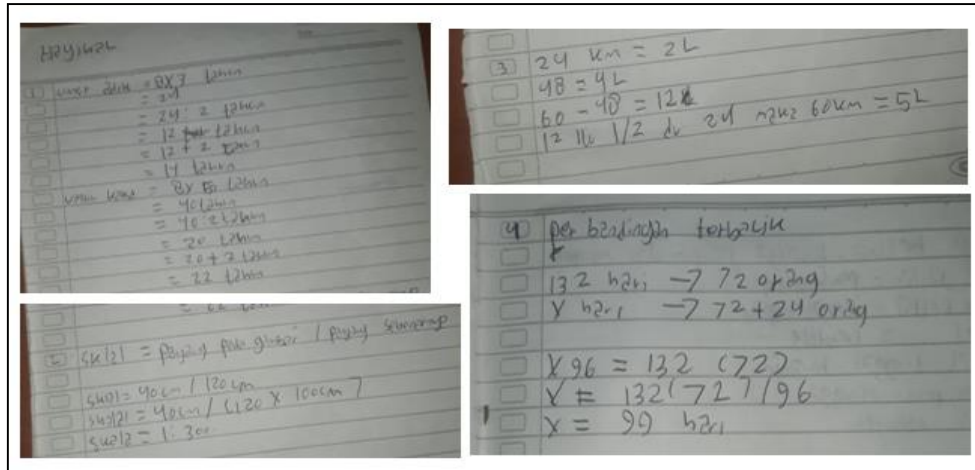 1 umur adik = 8 x 3 tahun
= 24
= 24 : 2 tahun
= 12 tahun
= 12 + 2 tahun
= 14 tahun
umur = 8 x 5 tahun
= 40 tahun
= 40 : 2 tahun
= 20 tahun
= 20 + 2 tahun
= 22 tahun
skala = panjang pada gambar / panjang sebenarnya
skala = 40 cm / 120 cm
skala = 40 cm / (120 x 100 cm)
skala = 1 : 300
3 24 km = 2 L
48 = 4 L
60 - 48 = 12
12 itu 1/2 dr 24 maka 60 km = 5 L
4 perbandingan terbalik
132 hari → 72 orang
x hari → 72 + 24 orang
x 96 = 132 (72)
x = 132 (72) / 96
x = 99 hari